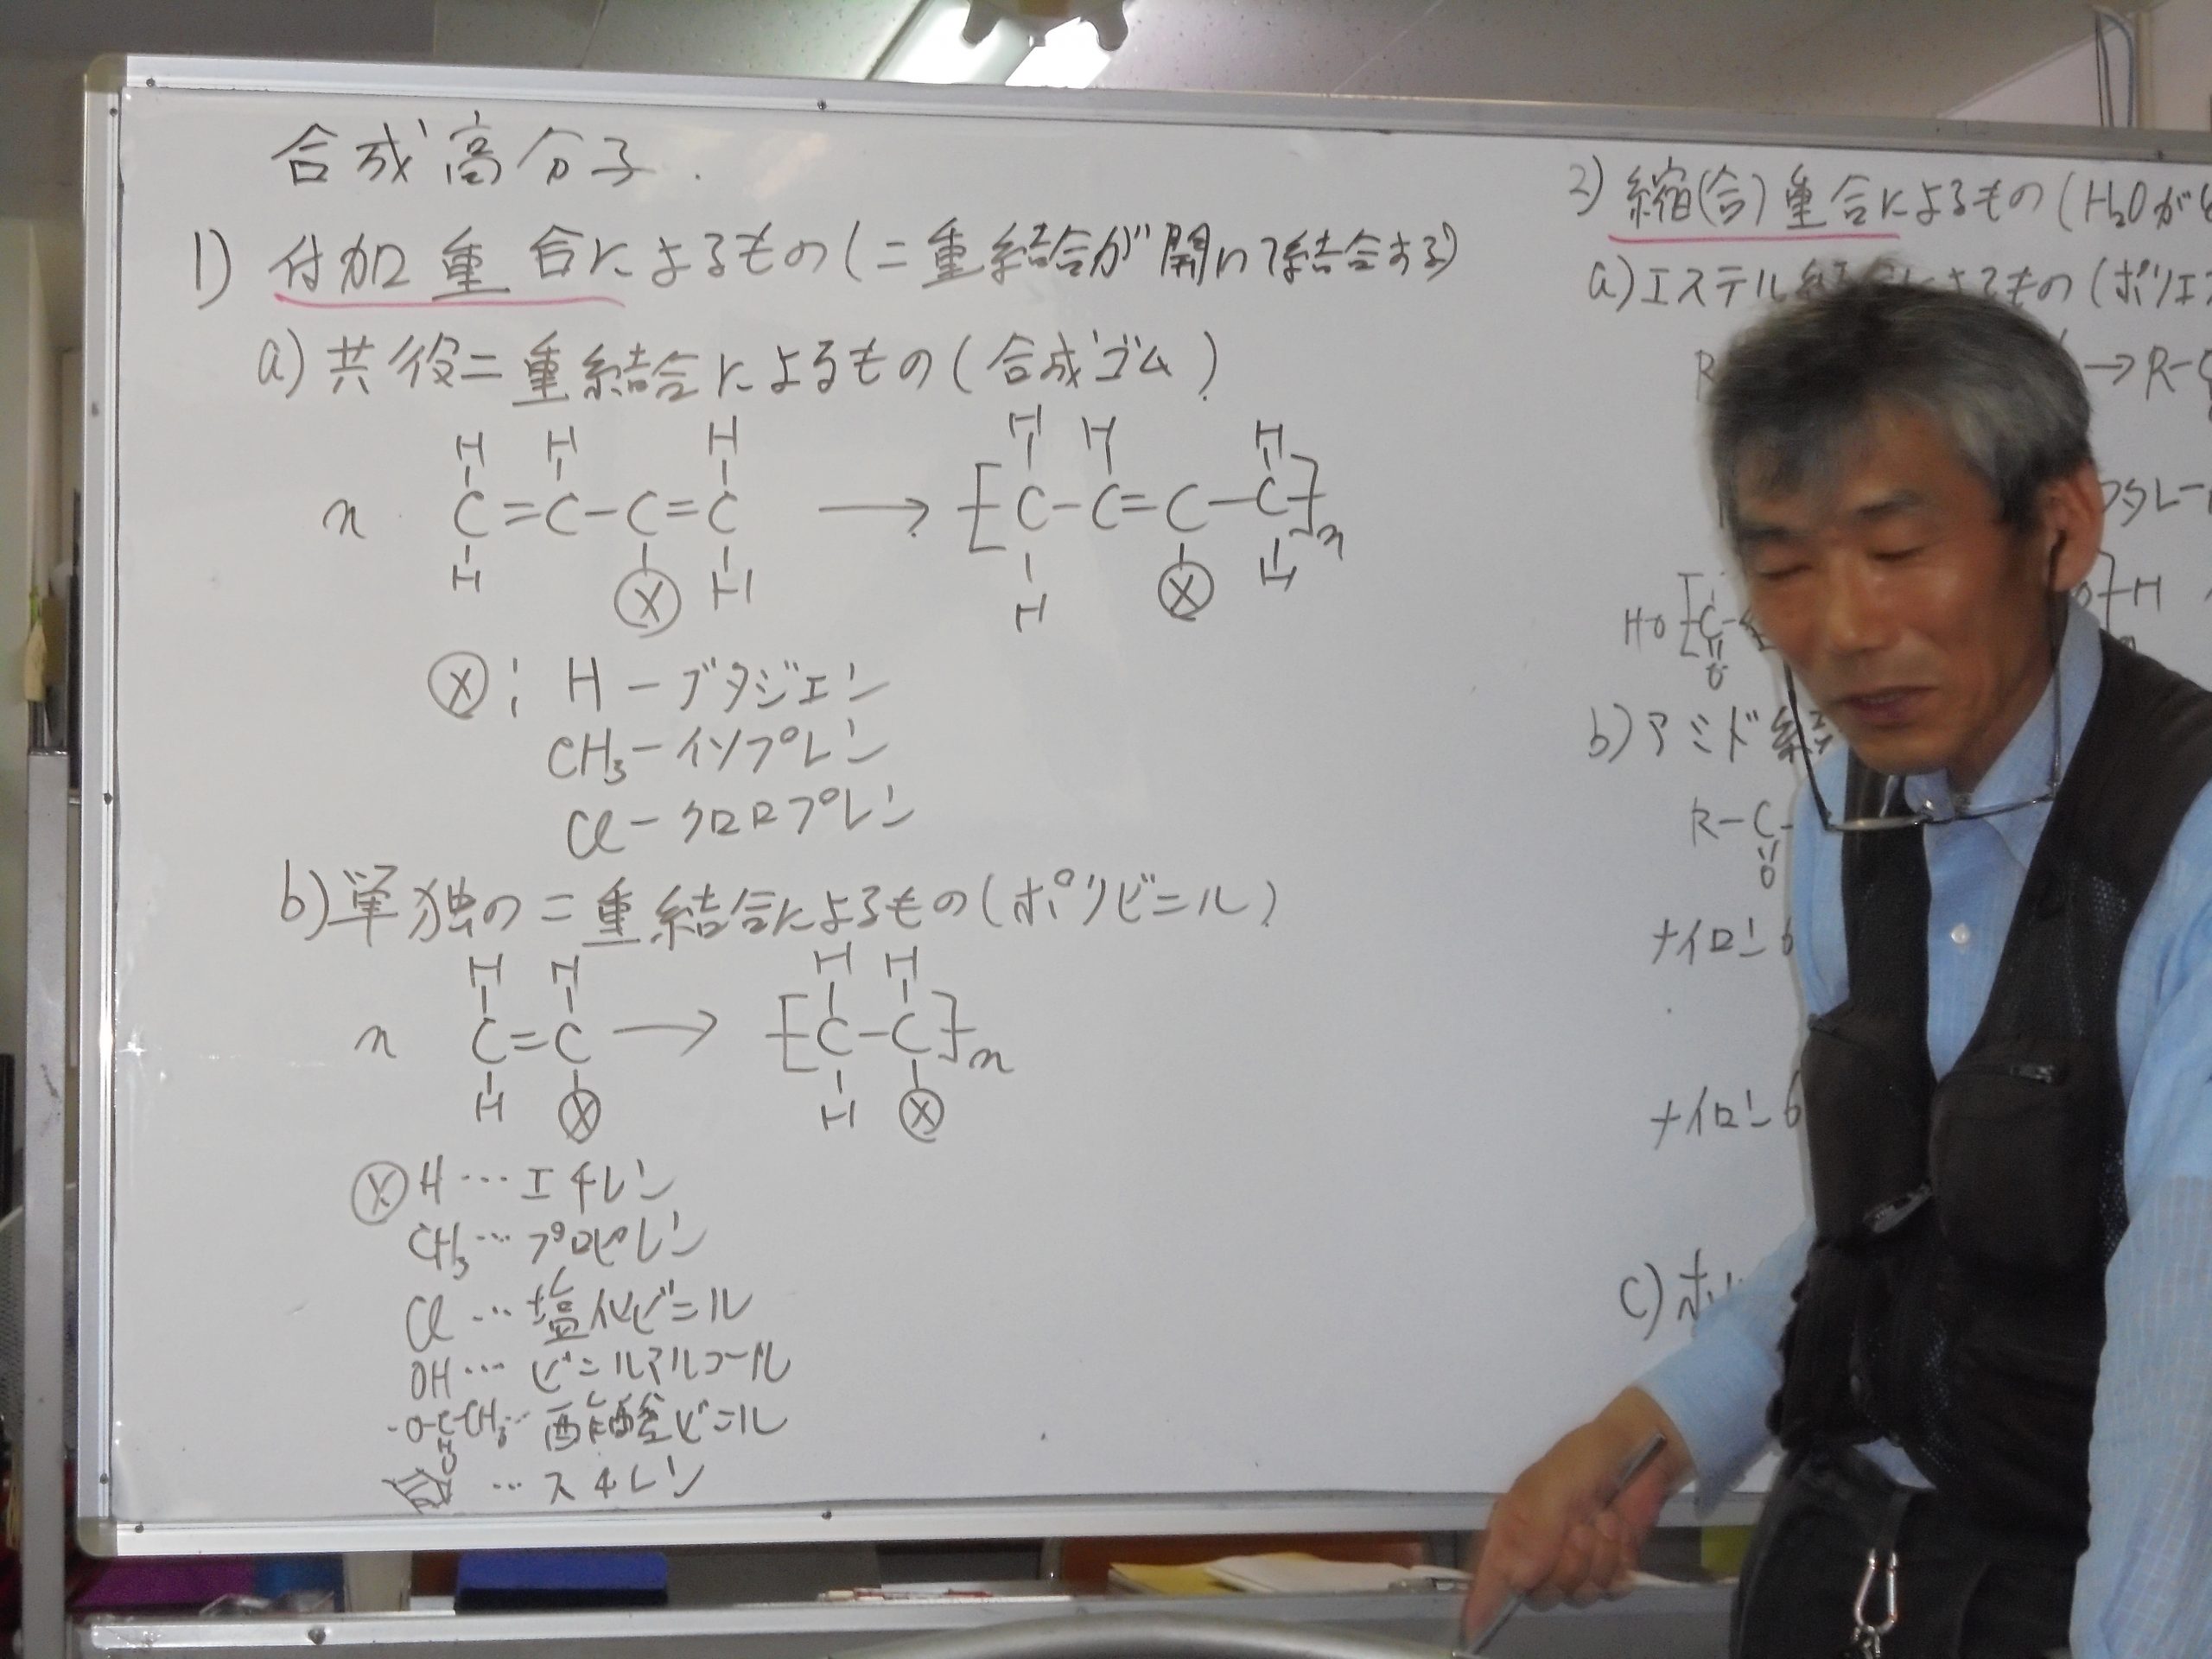 合成高分子.
1) 付加重合によるもの(二重結合が開いて結合する)
a) 共役二重結合によるもの(合成ゴム)
H H H H H H
n C=C-C=C → [C-C=C-C]n
H Ⓧ H H Ⓧ H
Ⓧ: H-ブタジエン
CH₃-イソプレン
Cl-クロロプレン
b) 単独の二重結合によるもの(ポリビニル)
H H H H
n C=C → [C-C]n
H Ⓧ H Ⓧ
Ⓧ H…エチレン
CH₃…プロピレン
Cl…塩化ビニル
OH…ビニルアルコール
-O-C-CH₃…酢酸ビニル
O
…スチレン
2) 縮(合)重合によるもの(H₂Oが
a) エステル結合によるもの(ポリエス
R → R-C
H
HO[C
O
b) アミド結
R-C-
O
ナイロン6
ナイロン6
c) ポリ